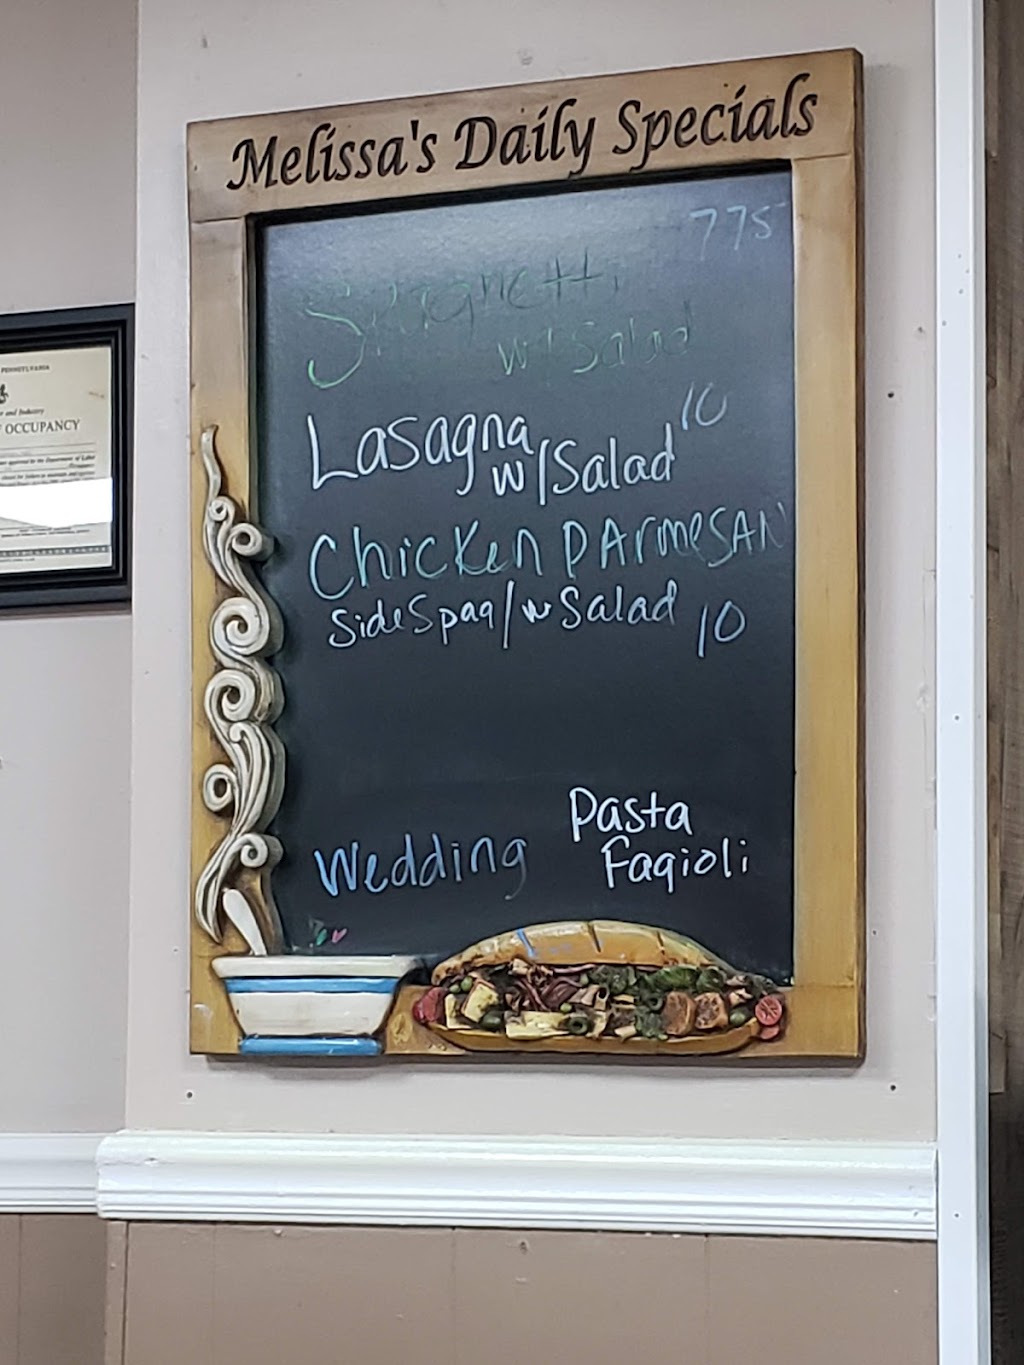 Melissa's Daily Specials
775
Spaghetti
w/Salad
Lasagna 10
w/Salad
Chicken PArmeSAN
Side Spag/w Salad 10
Pasta
Wedding Fagioli
PENNSYLVANIA
and Industry
OCCUPANCY